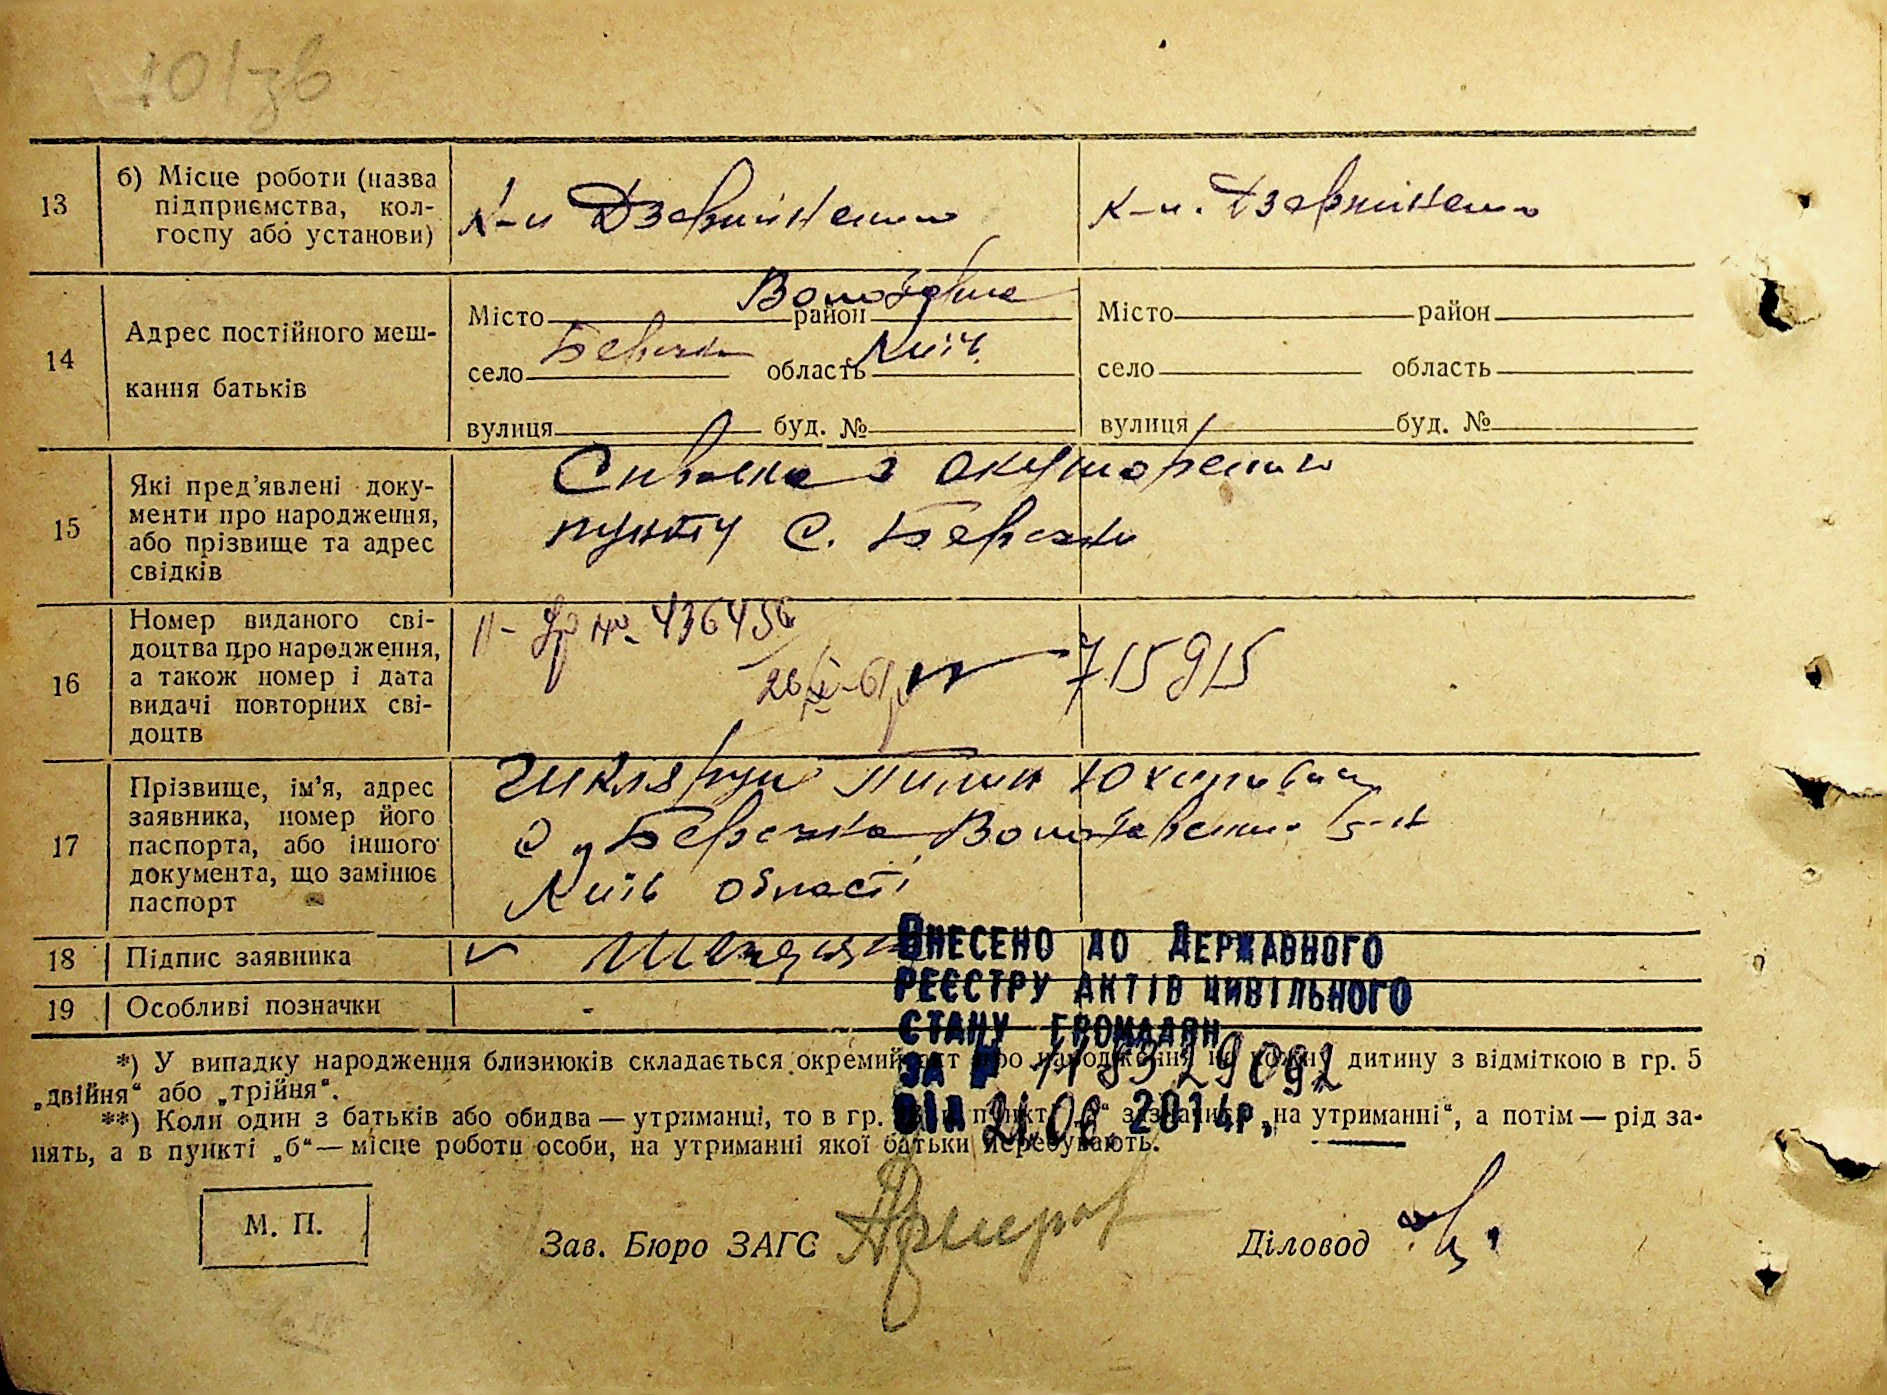 13 б) Місце роботи (назва
підприємства, кол-
госпу або установи)
к-п Дзержинського к-п. Дзержинського
14 Адрес постійного меш-
кання батьків
Місто район Володарка Місто район
село Березна область Київ. село область
вулиця буд. № вулиця буд. №
15 Які пред’явлені доку-
менти про народження,
або прізвище та адрес
свідків
Справка з акушорського
пункту с. Березни
16 Номер виданого сві-
доцтва про народження,
а також номер і дата
видачі повторних сві-
доцтв
№ 436456
715915
17 Прізвище, ім’я, адрес
заявника, номер його
паспорта, або іншого
документа, що замінює
паспорт
с. Березна
Київ області
18 Підпис заявника
19 Особливі позначки -
ВНЕСЕНО ДО ДЕРЖАВНОГО
РЕЄСТРУ АКТІВ ЦИВІЛЬНОГО
СТАНУ ГРОМАДЯН
ЗА №
ВІД 21.06 2014р.
*) У випадку народження близнюків складається окремий акт про народження на кожну дитину з відміткою в гр. 5
„двійня“ або „трійня“.
**) Коли один з батьків або обидва — утриманці, то в гр. пункті зазначити „на утриманні“, а потім — рід за-
нять, а в пункті „б“ — місце роботи особи, на утриманні якої батьки перебувають.
М. П.
Зав. Бюро ЗАГС Діловод